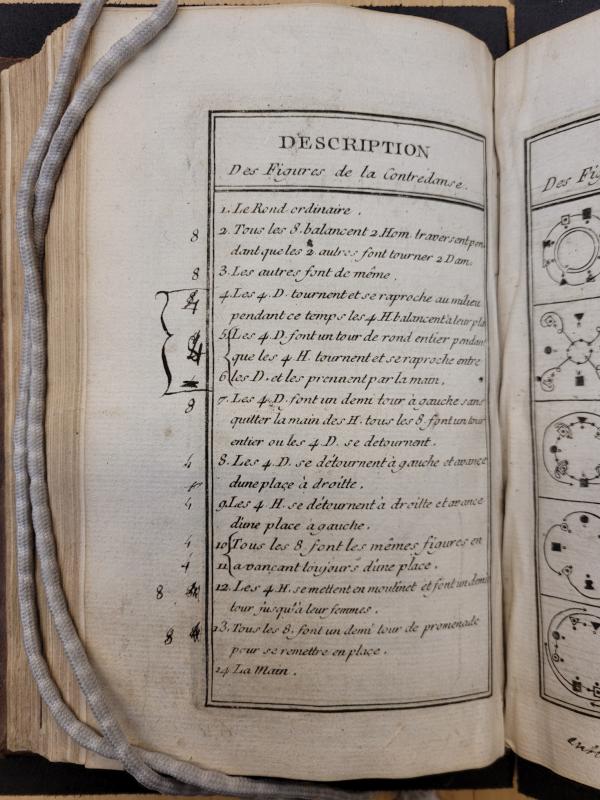 DESCRIPTION
Des Figures de la Contredanse.
1. Le Rond ordinaire.
8 2. Tous les 8. balancent 2 Hom. traversent pen-
dant que les 2 autres font tourner 2 Dam.
8 3. Les autres font de même.
4 4. Les 4. D. tournent et se raproche au milieu
pendant ce temps les 4 H balancent à leur
4 5. Les 4. D. font un tour de rond entier pendant
que les 4 H. tournent et se raproche entre
6 les D. et les prennent par la main.
8 7. Les 4. D. font un demi tour à gauche sans
quitter la main des H. tous les 8. font un tour
entier ou les 4. D. se detournent.
4 8. Les 4. D. se détournent à gauche et avance
d'une place à droitte.
4 9. Les 4 H. se détournent à droitte et avance
d'une place à gauche.
4 10. Tous les 8 font les mêmes figures en
4 11. avançant toujours d'une place.
8 12. Les 4 H. se mettent en moulinet et font un demi
tour jusqu'à leur femmes.
8 13. Tous les 8. font un demi tour de promenade
pour se remettre en place.
14. La Main.
Des